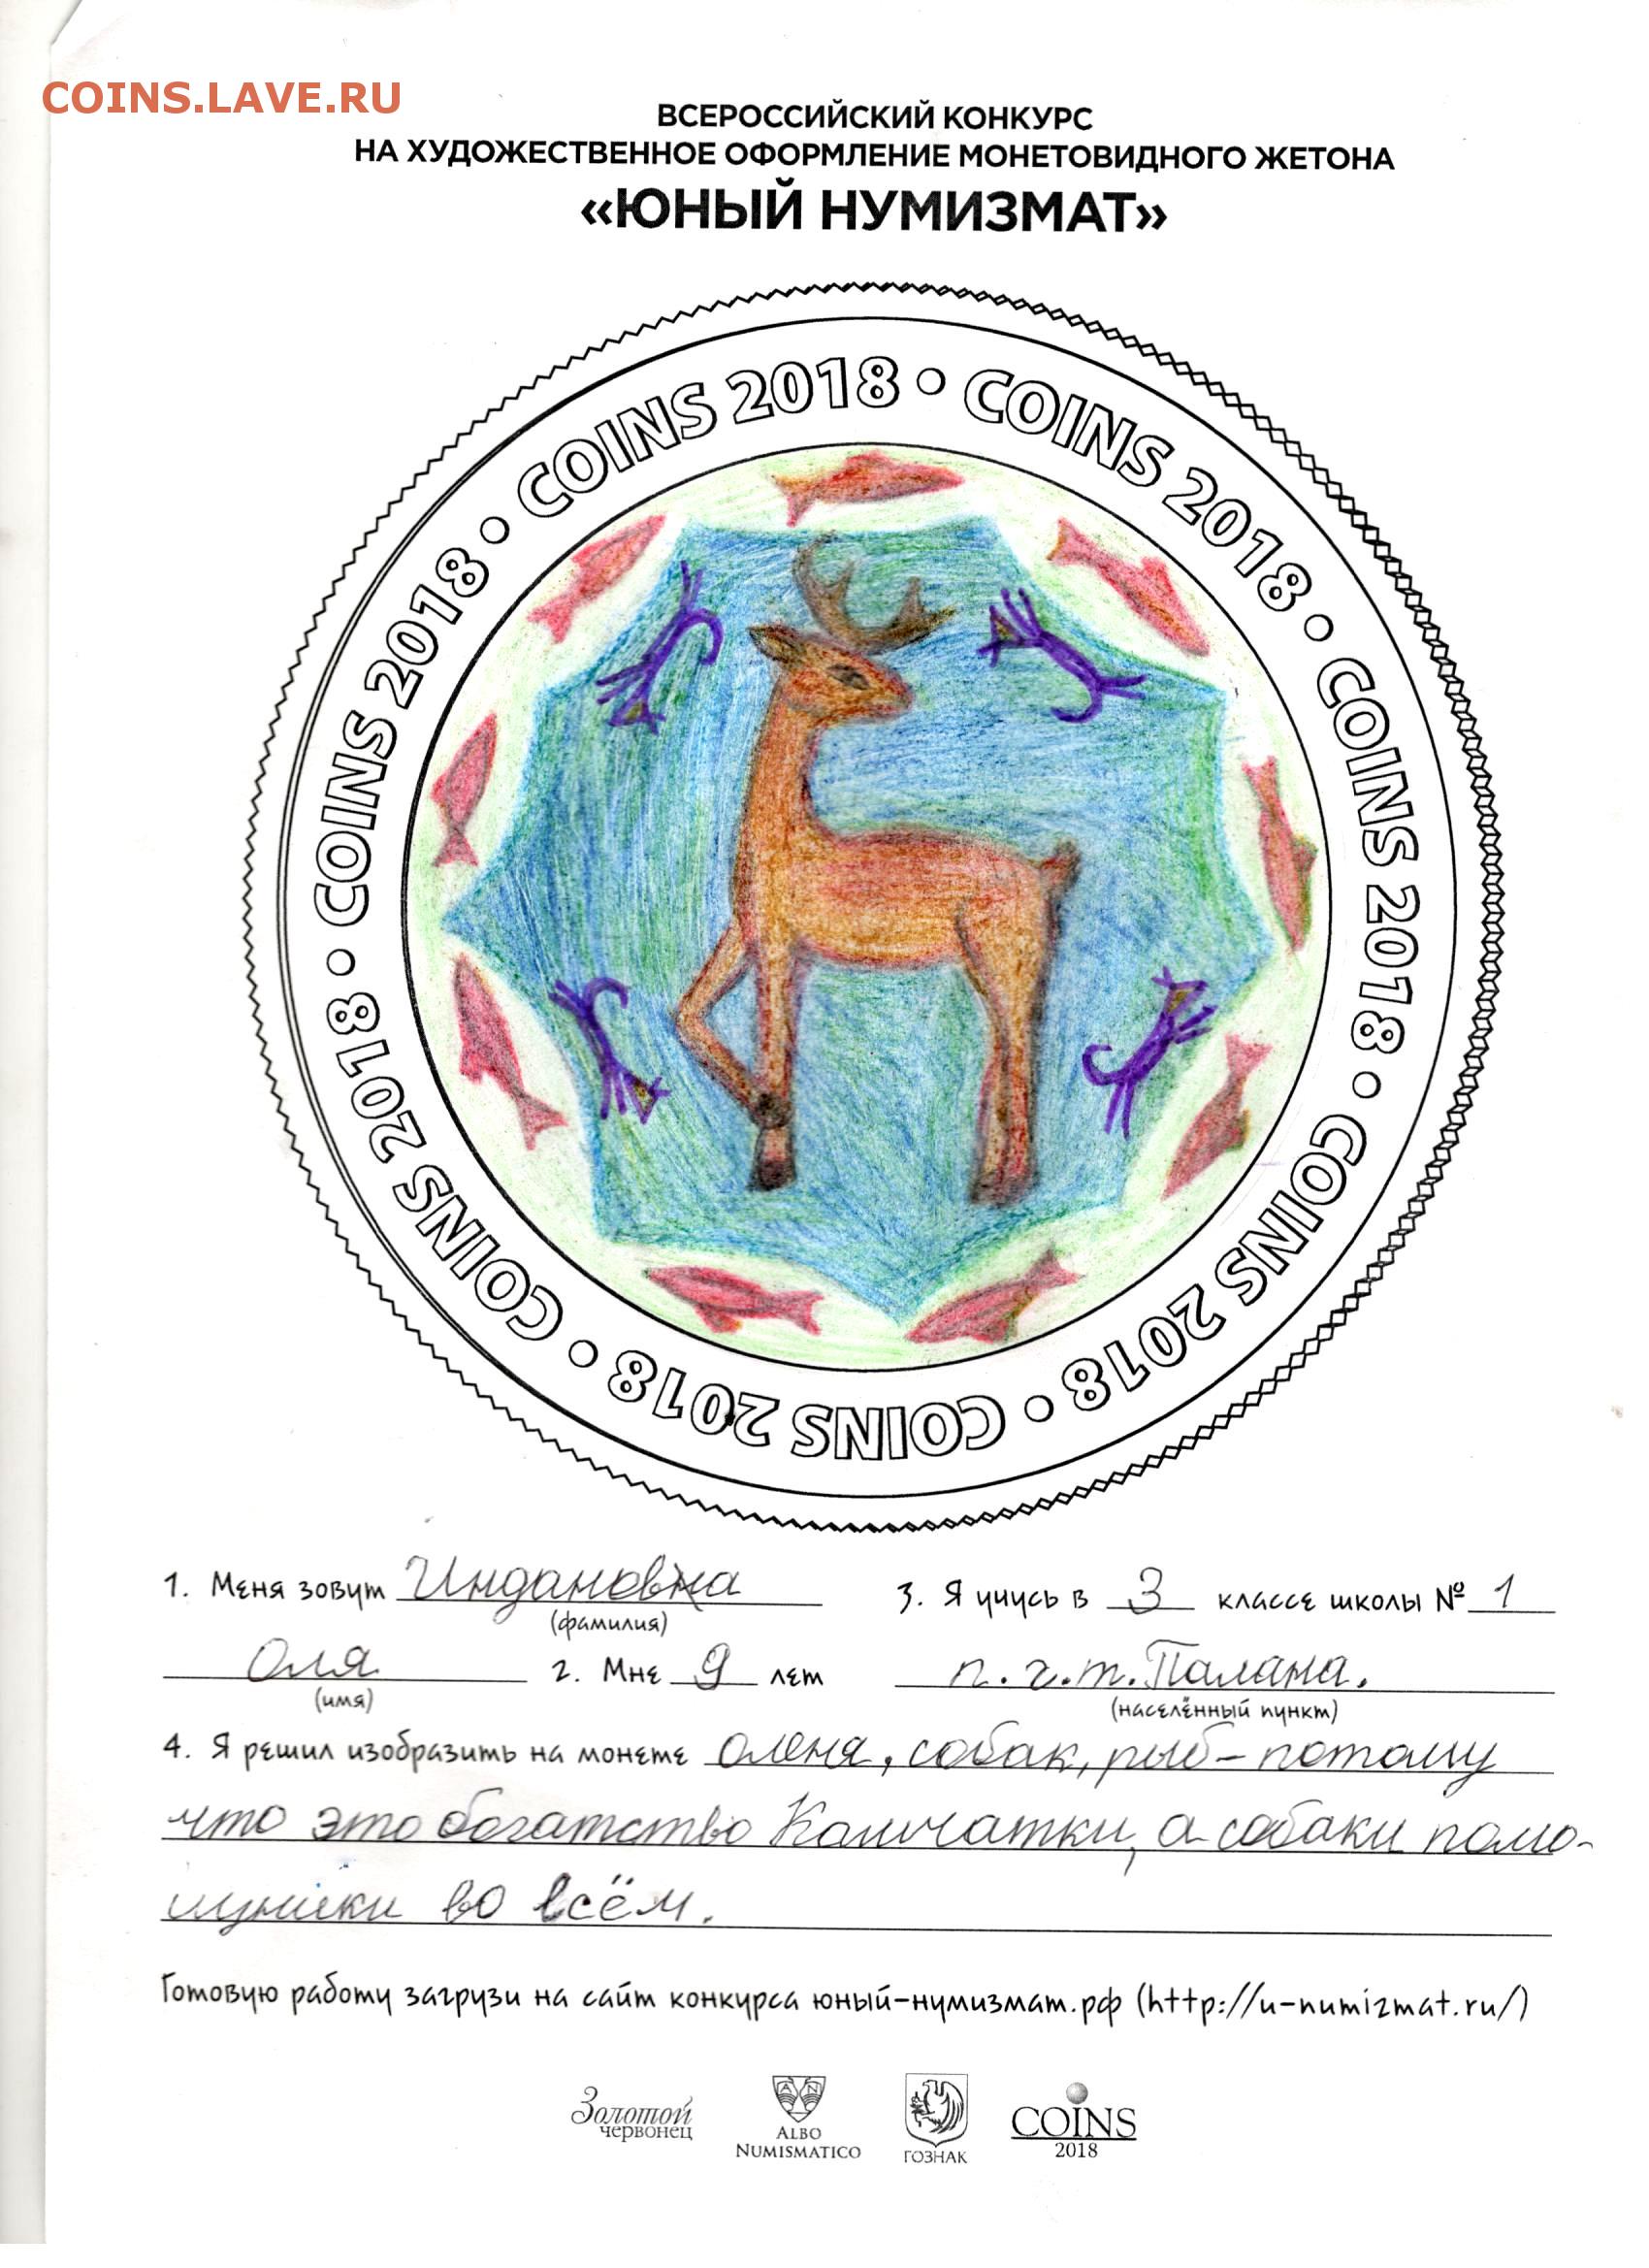 COINS.LAVE.RU
ВСЕРОССИЙСКИЙ КОНКУРС
НА ХУДОЖЕСТВЕННОЕ ОФОРМЛЕНИЕ МОНЕТОВИДНОГО ЖЕТОНА
«ЮНЫЙ НУМИЗМАТ»
COINS 2018 • COINS 2018 • COINS 2018 • COINS 2018 • COINS 2018 • COINS 2018 • COINS 2018 •
1. Меня зовут Индановна 3. Я учусь в 3 классе школы № 1
(фамилия)
Оля 2. Мне 9 лет п.г.т. Палана.
(имя) (населённый пункт)
4. Я решил изобразить на монете оленя, собак, рыб – потому
что это богатство Камчатки, а собаки помо-
щники во всём.
Готовую работу загрузи на сайт конкурса юный-нумизмат.рф (http://u-numizmat.ru/)
Золотой червонец
ALBO NUMISMATICO
ГОЗНАК
COINS 2018